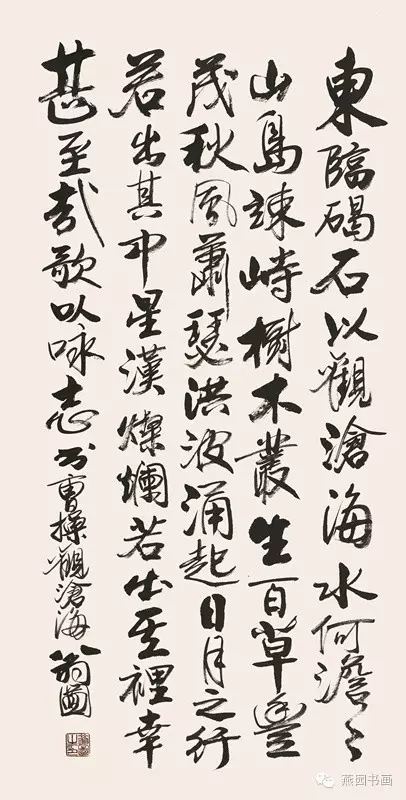 東臨碣石以觀滄海水何澹〻
山島竦峙樹木叢生百草豐
茂秋風蕭瑟洪波涌起日月之行
若出其中星漢燦爛若出其裡幸
甚至哉歌以咏志书曹操觀滄海 翁圖
燕园书画